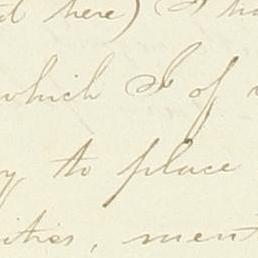 here) I
which I of
to place
ities, ment